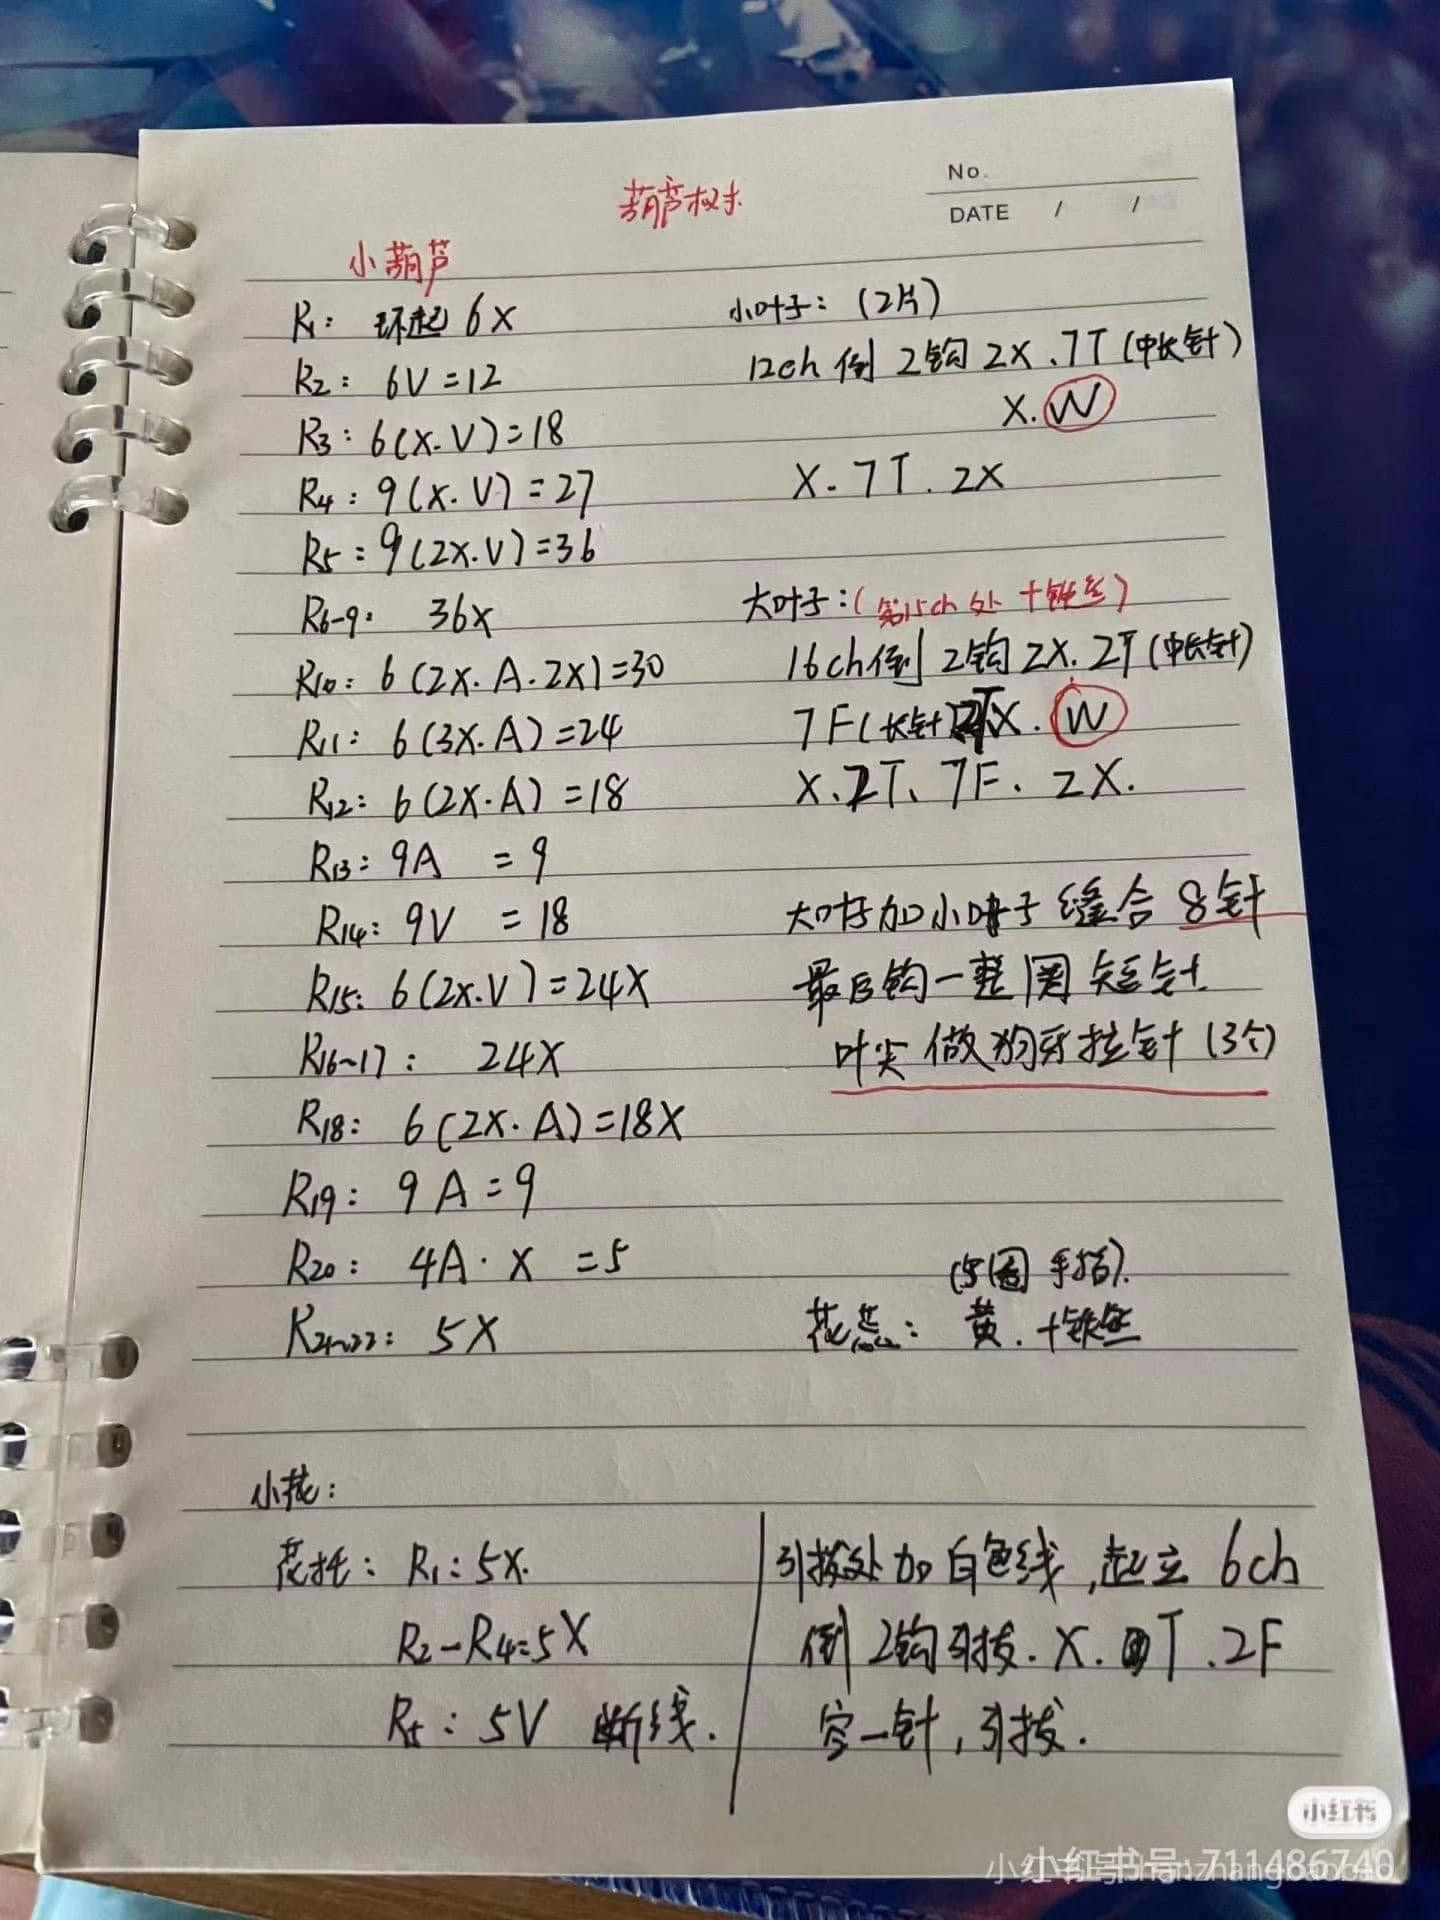 No.
DATE / /
葫芦
小葫芦
R1: 环起 6X
R2: 6V=12
R3: 6(X.V)=18
R4: 9(X.V)=27
R5: 9(2X.V)=36
R6-9: 36X
R10: 6(2X.A.2X)=30
R11: 6(3X.A)=24
R12: 6(2X.A)=18
R13: 9A =9
R14: 9V =18
R15: 6(2X.V)=24X
R16~17: 24X
R18: 6(2X.A)=18X
R19: 9A=9
R20: 4A.X =5
R21~22: 5X
小叶子: (2片)
12ch 倒 2钩 2X、7T (中长针)
X.W
X.7T.2X
大叶子: (第15ch处 十铁丝)
16ch倒 2钩 2X.2T (中长针)
7F(长针) X.W
X.2T、7F.2X.
大叶加小叶子 缝合 8针
最后钩一整圈 短针.
叶尖 做狗牙拉针 (3个)
(5圈 手指).
花蕊: 黄.十铁丝
小花:
花托: R1: 5X.
R2-R4=5X
R5: 5V 断线.
引拔处加白色线,起立 6ch
倒 2钩引拔.X.T.2F
空一针,引拔.
小红书
小红书号:711486740